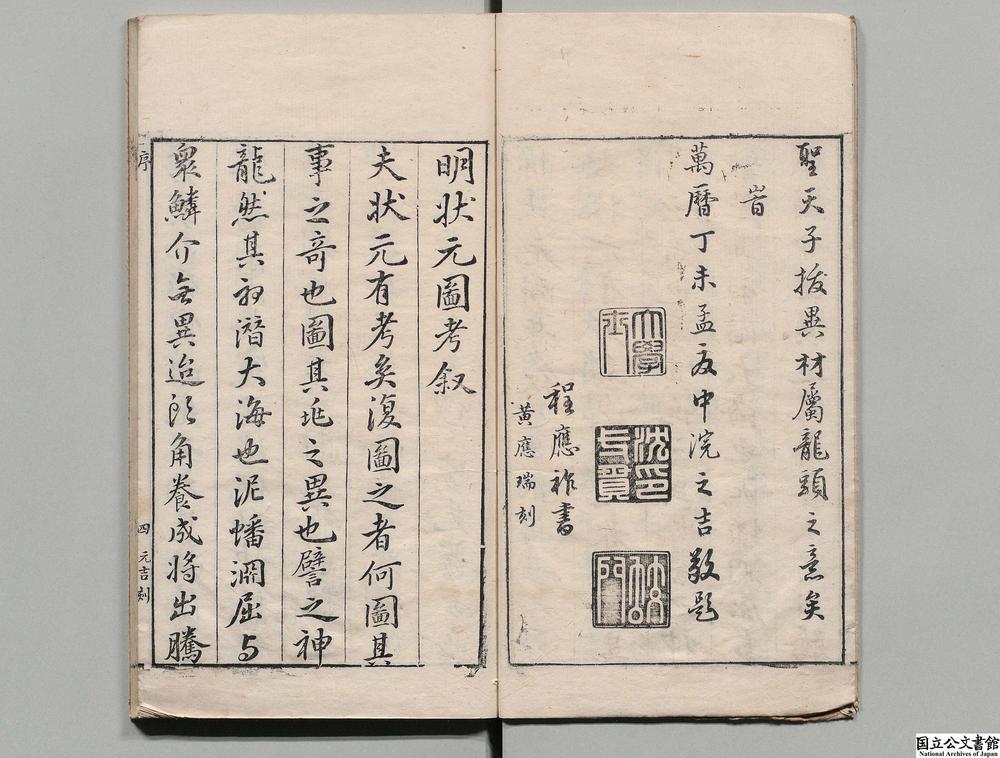 聖天子拔異材屬龍頭之意矣
旹
萬曆丁未孟夏中浣之吉敬題
大學士
沈一貫印
程應祚書
黃應瑞刻
明狀元圖考叙
夫狀元有考矣復圖之者何圖其
事之奇也圖其兆之異也譬之神
龍然其初潛大海也泥蟠淵屈与
眾鱗介无異迨頭角養成將出騰
序
四
元吉刻
国立公文書館
National Archives of Japan